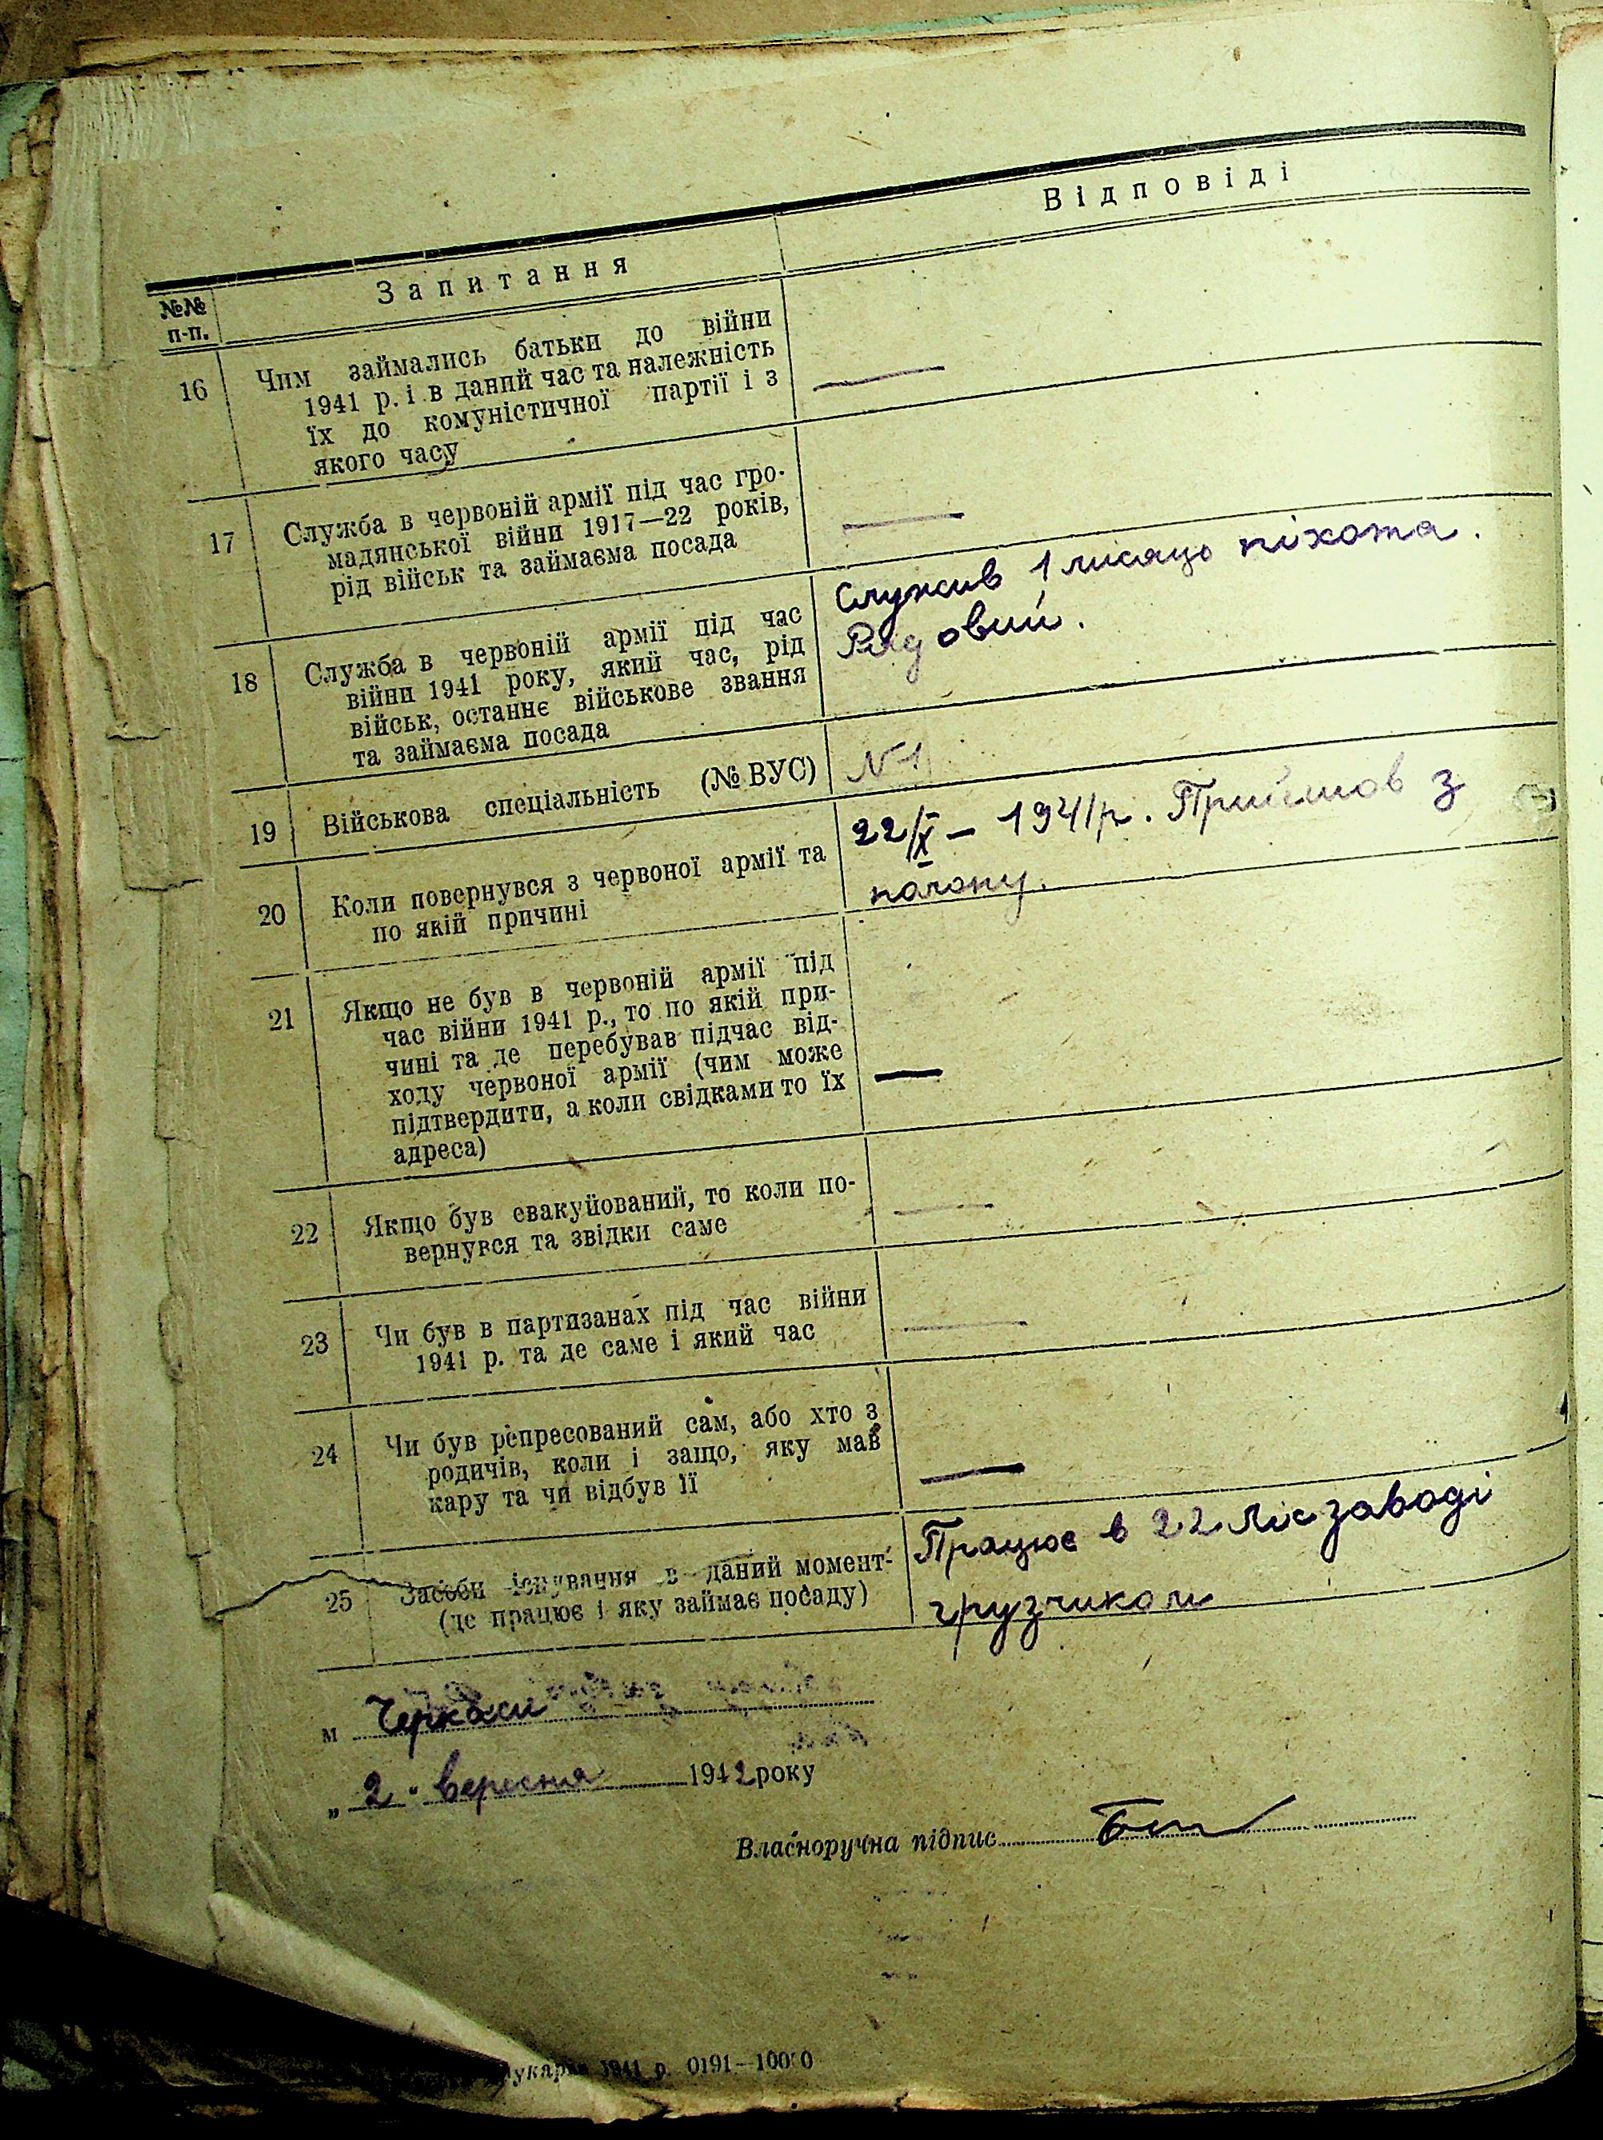 №№ п-п.
Запитання
Відповіді
16
Чим займались батьки до війни
1941 р. і в даний час та належність
їх до комуністичної партії і з
якого часу
—
17
Служба в червоній армії під час гро-
мадянської війни 1917—22 років,
рід військ та займаєма посада
—
18
Служба в червоній армії під час
війни 1941 року, який час, рід
військ, останнє військове звання
та займаєма посада
Служив 1 місяць піхота.
Рядовий.
19
Військова спеціальність (№ ВУС)
№1
20
Коли повернувся з червоної армії та
по якій причині
22/X — 1941 р. Прийшов з
полону.
21
Якщо не був в червоній армії під
час війни 1941 р., то по якій при-
чині та де перебував підчас від-
ходу червоної армії (чим може
підтвердити, а коли свідками то їх
адреса)
—
22
Якщо був евакуйований, то коли по-
вернувся та звідки саме
—
23
Чи був в партизанах під час війни
1941 р. та де саме і який час
—
24
Чи був репресований сам, або хто з
родичів, коли і защо, яку мав
кару та чи відбув її
—
25
Засоби існування в даний момент
(де працює і яку займає посаду)
Працює в 22 Лісзаводі
грузчиком
м Черкаси
„ 2 " вересня 1942 року
Власноручна підпис
1941 р. 0191—10000